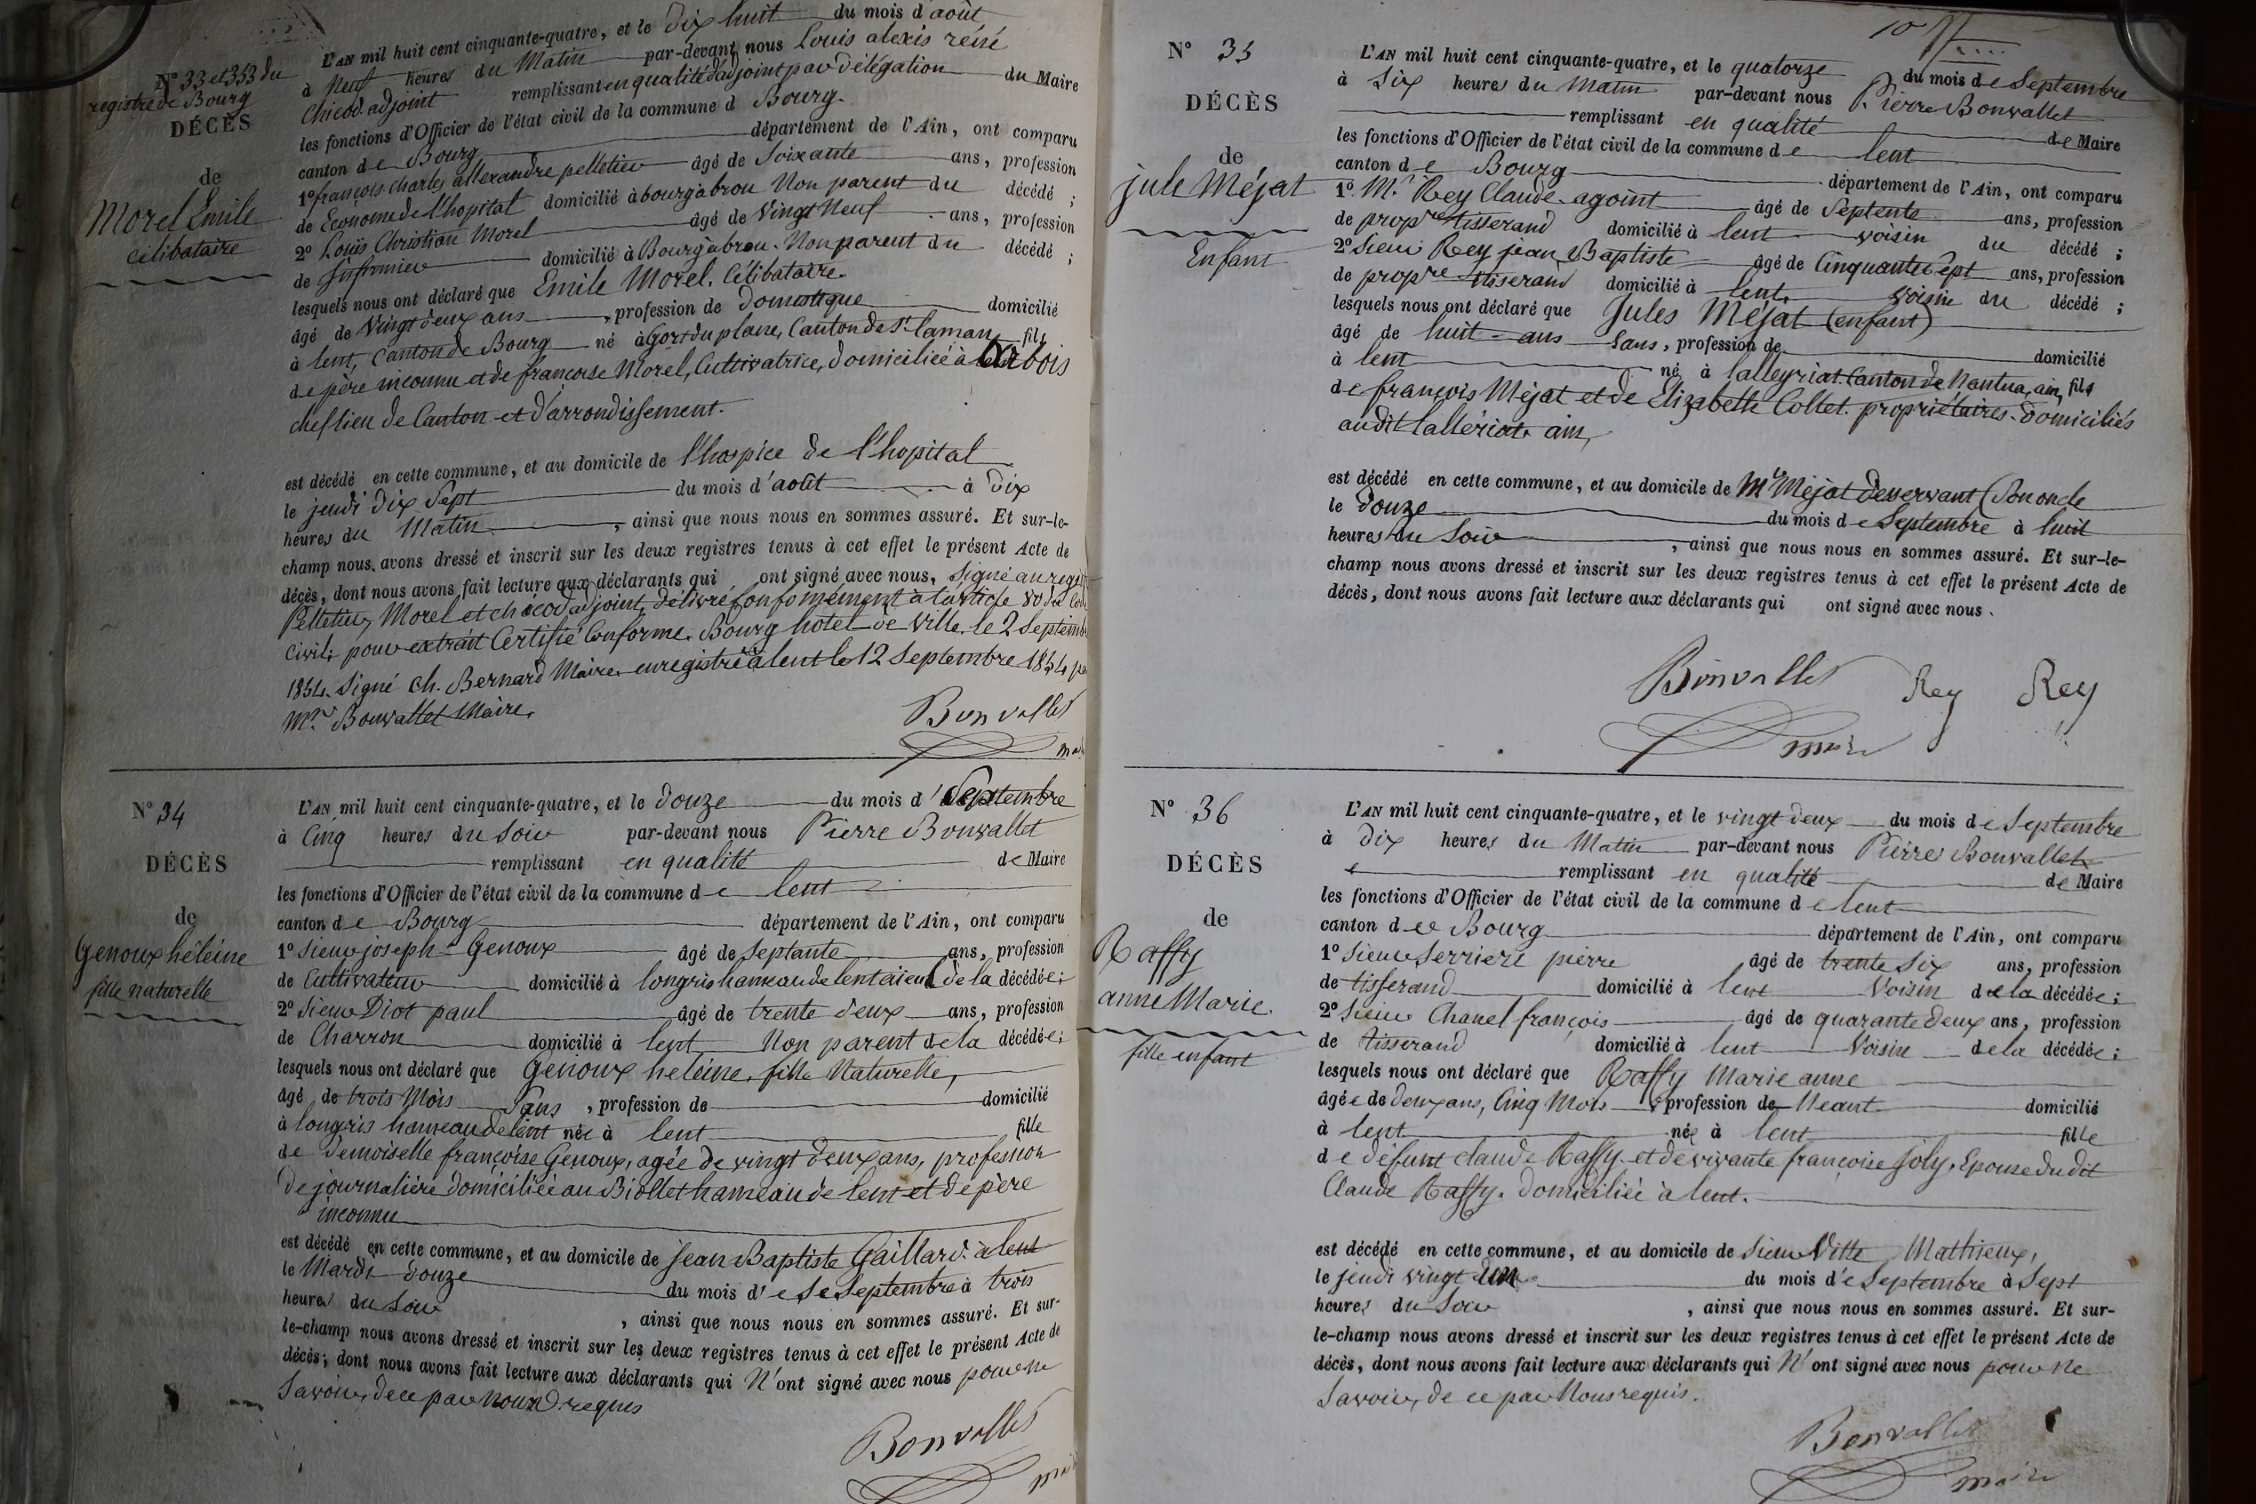 N° 33 et 353 du
registre de Bourg
DÉCÈS
de
Morel Emile
célibataire
L'AN mil huit cent cinquante-quatre, et le dix huit du mois d'août
à Neuf heures du Matin par-devant nous Louis alexis réné
Chicod adjoint remplissant en qualité d'adjoint par délégation du Maire
les fonctions d'Officier de l'état civil de la commune d Bourg.
canton de Bourg département de l'Ain, ont comparu
1° françois charles allexandre pelletier âgé de Soixante ans, profession
de Econome de l'hopital domicilié à bourg à brou Non parent du décédé ;
2° Louis Christian Morel âgé de Vingt Neuf ans, profession
de Infirmier domicilié à Bourg à brou. Non parent du décédé ;
lesquels nous ont déclaré que Emile Morel. Célibataire.
âgé de Vingt deux ans, profession de domestique domicilié
à lent, Canton de Bourg né à du plane, Canton de St. laman fils
de père inconnu et de francoise Morel, Cultivatrice, domiciliée à
chef lieu de Canton et d'arrondissement.
est décédé en cette commune, et au domicile de l'hospice de l'hopital
le jeudi dix Sept du mois d'août à dix
heures du Matin, ainsi que nous nous en sommes assuré. Et sur-le-
champ nous avons dressé et inscrit sur les deux registres tenus à cet effet le présent Acte de
décès, dont nous avons fait lecture aux déclarants qui ont signé avec nous, Signé au
Pelletier, Morel et chicod adjoint, délivré Conformément à l'article 80 du
civil; pour extrait Certifié Conforme. Bourg hotel de Ville. le 2 Septembre
1854. Signé Ch. Bernard Maire. enregistré à lent le 12 Septembre 1854 par
Mr. Bonvallet Maire.
Bonvallet
N° 34
DÉCÈS
de
Genoux héleine
fille naturelle
L'AN mil huit cent cinquante-quatre, et le douze du mois d' Septembre
à Cinq heures du Soir par-devant nous Pierre Bonvallet
remplissant en qualité de Maire
les fonctions d'Officier de l'état civil de la commune de lent
canton de Bourg département de l'Ain, ont comparu
1° Sieur joseph Genoux âgé de Septante ans, profession
de Cultivateur domicilié à longris hameau de lent aïeul de la décédée ;
2° Sieur Diot paul âgé de trente deux ans, profession
de Charron domicilié à lent Non parent de la décédée ;
lesquels nous ont déclaré que Genoux héleine, fille Naturelle,
âgé de trois Mois Sans, profession de domicilié
à longris hameau de lent née à lent fille
de Demoiselle françoise Genoux, agée de vingt deux ans, profession
de journalière domiciliée au Biollet hameau de lent et de père
inconnu
est décédé en cette commune, et au domicile de jean Baptiste Gaillard. à lent
le Mardi douze du mois d' e Se Septembre à trois
heures du Soir, ainsi que nous nous en sommes assuré. Et sur-
le-champ nous avons dressé et inscrit sur les deux registres tenus à cet effet le présent Acte de
décès; dont nous avons fait lecture aux déclarants qui N'ont signé avec nous pour ne
Savoir, de ce par Nous requis
Bonvallet
N° 35
DÉCÈS
de
jule Méjat
Enfant
L'AN mil huit cent cinquante-quatre, et le quatorze du mois de Septembre
à Six heures du Matin par-devant nous Pierre Bonvallet
remplissant en qualité de Maire
les fonctions d'Officier de l'état civil de la commune de lent
canton de Bourg département de l'Ain, ont comparu
1° Mr. Rey Claude. agoint âgé de Septente ans, profession
de propre tisserand domicilié à lent voisin du décédé ;
2° Sieur Rey jean Baptiste âgé de Cinquante Sept ans, profession
de propre tisserand domicilié à lent. Voisin du décédé ;
lesquels nous ont déclaré que Jules Méjat (enfant)
âgé de huit ans Sans, profession de domicilié
à lent né à lalleyriat. Canton de Nantua, ain, fils
de françois Méjat et de Elizabette Collet. propriétaires. domiciliés
audit lallériat. ain,
est décédé en cette commune, et au domicile de Mr Méjat desservant (Son oncle
le douze du mois de Septembre à huit
heures du Soir, ainsi que nous nous en sommes assuré. Et sur-le-
champ nous avons dressé et inscrit sur les deux registres tenus à cet effet le présent Acte de
décès, dont nous avons fait lecture aux déclarants qui ont signé avec nous.
Bonvallet Rey Rey
maire
N° 36
DÉCÈS
de
Raffy
anne Marie.
fille enfant
L'AN mil huit cent cinquante-quatre, et le vingt deux du mois de Septembre
à dix heures du Matin par-devant nous Pierre Bonvallet
remplissant en qualité de Maire
les fonctions d'Officier de l'état civil de la commune de lent
canton de Bourg département de l'Ain, ont comparu
1° Sieur Serriere pierre âgé de trente Six ans, profession
de tisserand domicilié à lent Voisin de la décédée ;
2° Sieur Chanel françois âgé de quarante deux ans, profession
de tisserand domicilié à lent Voisin de la décédée ;
lesquels nous ont déclaré que Raffy Marie anne
âgée de deux ans, Cinq Mois, profession de Neant domicilié
à lent née à lent fille
de défunt claude Raffy et de vivante françoise joly, Epouse du dit
Claude Raffy. domiciliée à lent.
est décédé en cette commune, et au domicile de Sieur Vitte Mathieux,
le jeudi vingt un du mois d'e Septembre à Sept
heures du Soir, ainsi que nous nous en sommes assuré. Et sur-
le-champ nous avons dressé et inscrit sur les deux registres tenus à cet effet le présent Acte de
décès, dont nous avons fait lecture aux déclarants qui N'ont signé avec nous pour ne
Savoir, de ce par Nous requis.
Bonvallet
maire